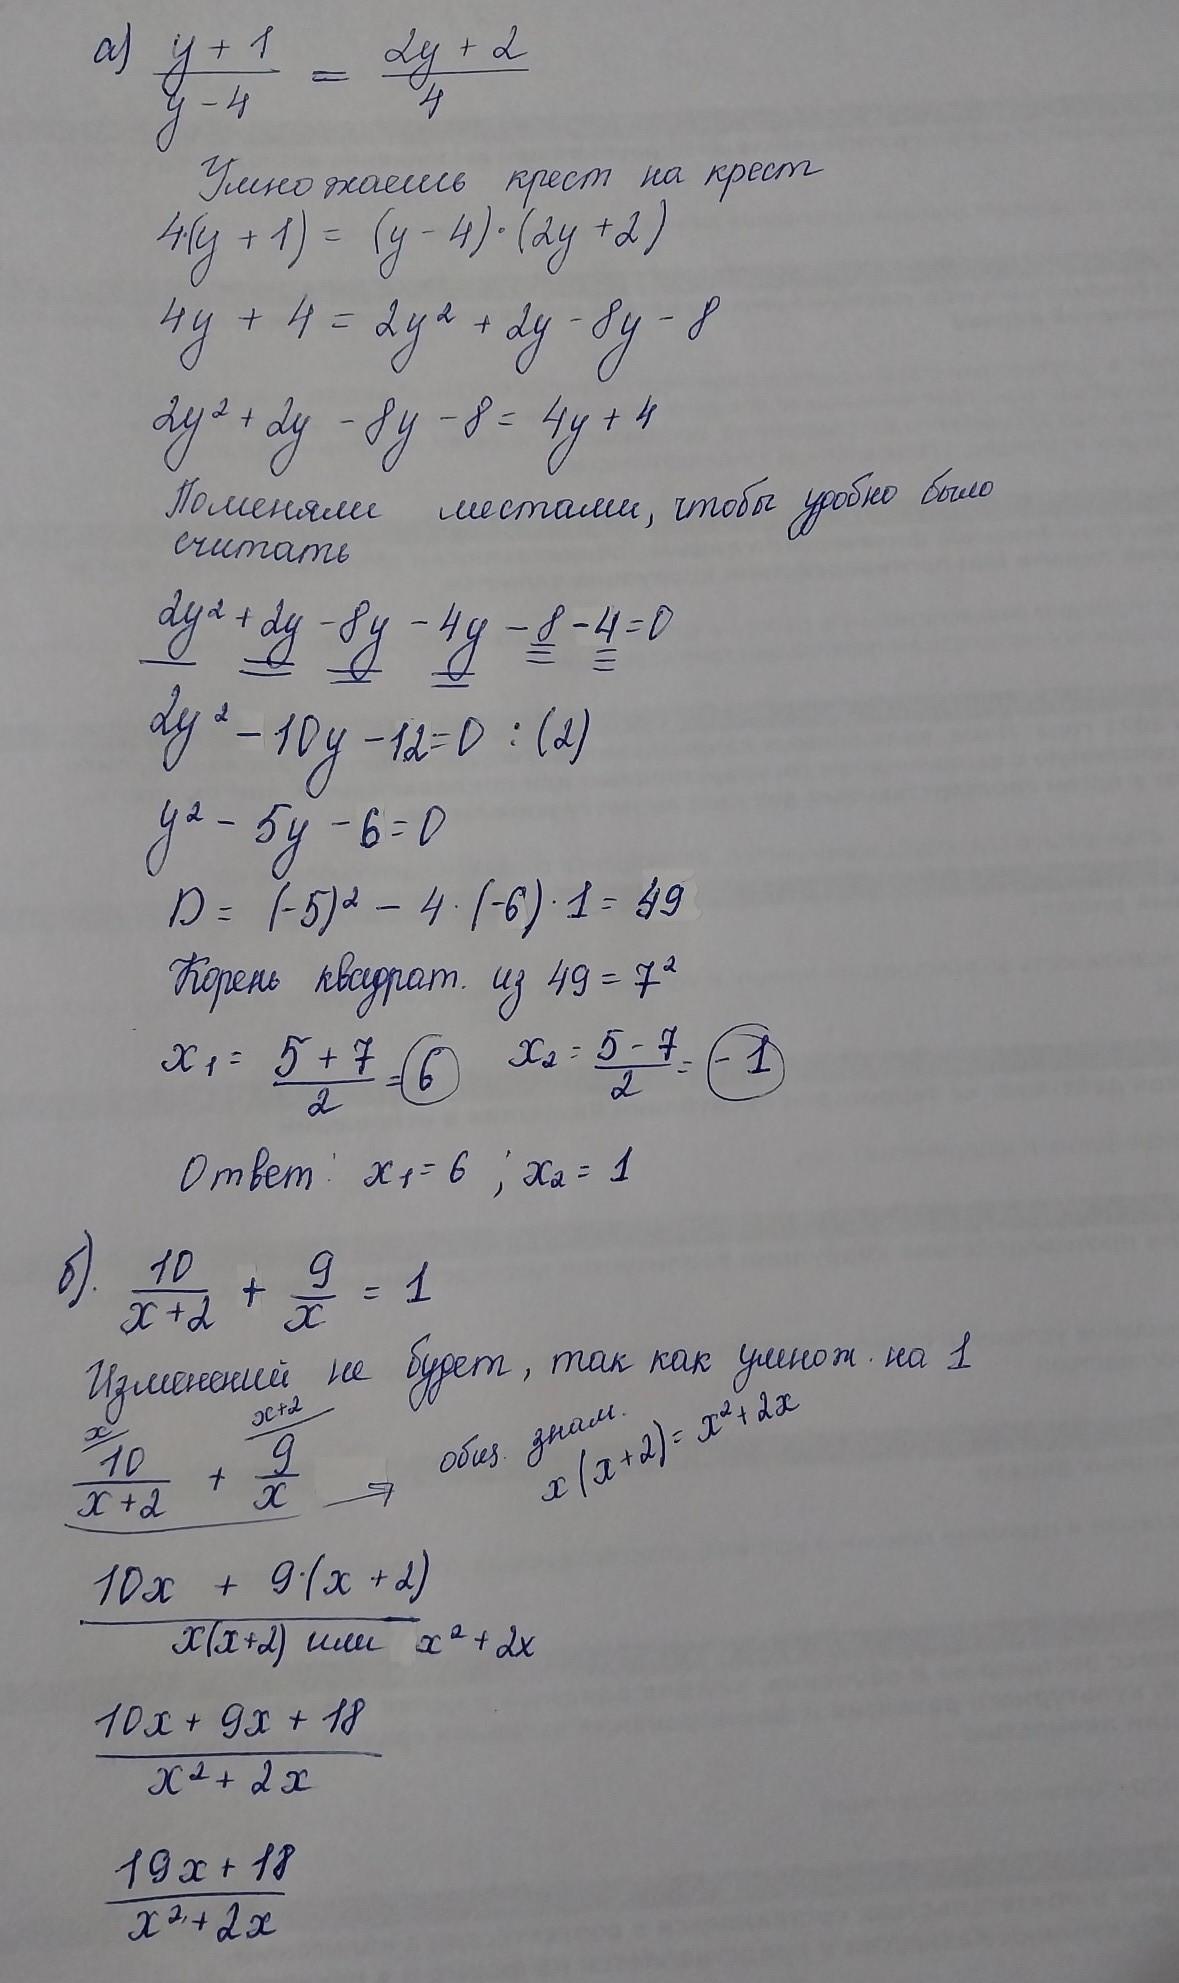 а) y + 1 / y - 4 = 2y + 2 / 4
Умножаешь крест на крест
4·(y + 1) = (y - 4)·(2y + 2)
4y + 4 = 2y² + 2y - 8y - 8
2y² + 2y - 8y - 8 = 4y + 4
Поменяли местами, чтобы удобно было
считать
2y² + 2y - 8y - 4y - 8 - 4 = 0
2y² - 10y - 12 = 0 : (2)
y² - 5y - 6 = 0
D = (-5)² - 4·(-6)·1 = 49
Корень квадрат. из 49 = 7²
x₁ = 5 + 7 / 2 = 6 x₂ = 5 - 7 / 2 = -1
Ответ: x₁ = 6 ; x₂ = 1
б). 10 / x + 2 + 9 / x = 1
Изменений не будет, так как умнож. на 1
x x+2
10 / x + 2 + 9 / x → общ. знам.
x(x+2) = x² + 2x
10x + 9·(x + 2)
x(x+2) или x² + 2x
10x + 9x + 18
x² + 2x
19x + 18
x² + 2x